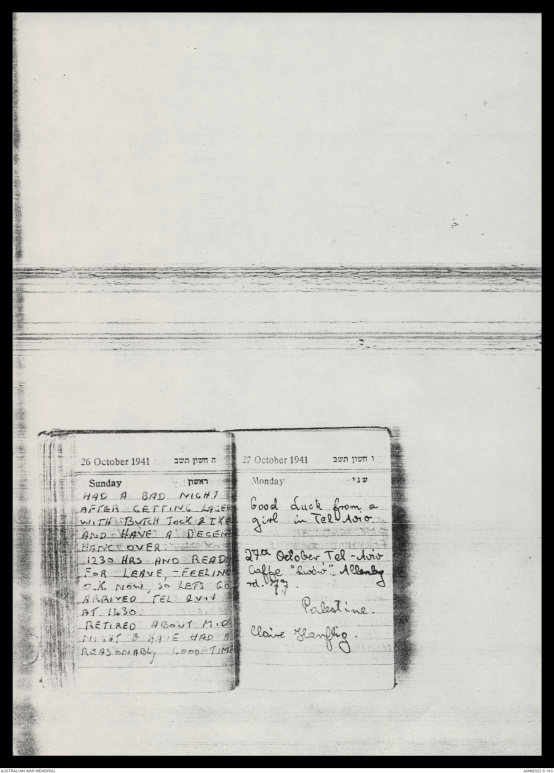 26 October 1941 ה חשון תשב
Sunday ראשון
HAD A BAD NIGHT
AFTER GETTING
WITH BUTCH JOCK & IKE
AND HAVE A DECEN
HANGOVER.
1230 HRS AND READ
FOR LEAVE, - FEELING
O.K NOW, SO LETS GO
ARRIVED TEL AVIV
AT 1430.
RETIRED ABOUT MID
NIGHT & HAVE HAD A
REASONABLY GOOD TIME
27 October 1941 ו חשון תשב
Monday שני
Good Luck from a
girl in Tel Aviv
27th October Tel-Aviv
Caffe Allenby
rd. 77.
Palestine.
Claire Hanflig.
AUSTRALIAN WAR MEMORIAL